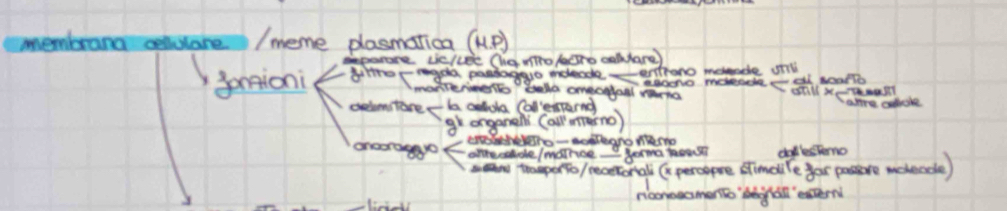 membrana cellulare / meme plasmatica (M.P)
separare LIC/LEC (liq. intro/extra cellulare)
funzioni
filtro
regola passaggio molecole
entrano molecole utili
escono molecole
di scarto
utili x tessuti
altre cellule
mantenimento della omeostasi interna
delimitare
la cellula (all'esterno)
gli organelli (all'interno)
ancoraggio
citoscheletro - sostegno interno
altre cellule/matrice - forma tessuti
trasporto/recettoriali (x percepire stimoli dall'esterno e far passare molecole)
riconoscimento "segnali" esterni